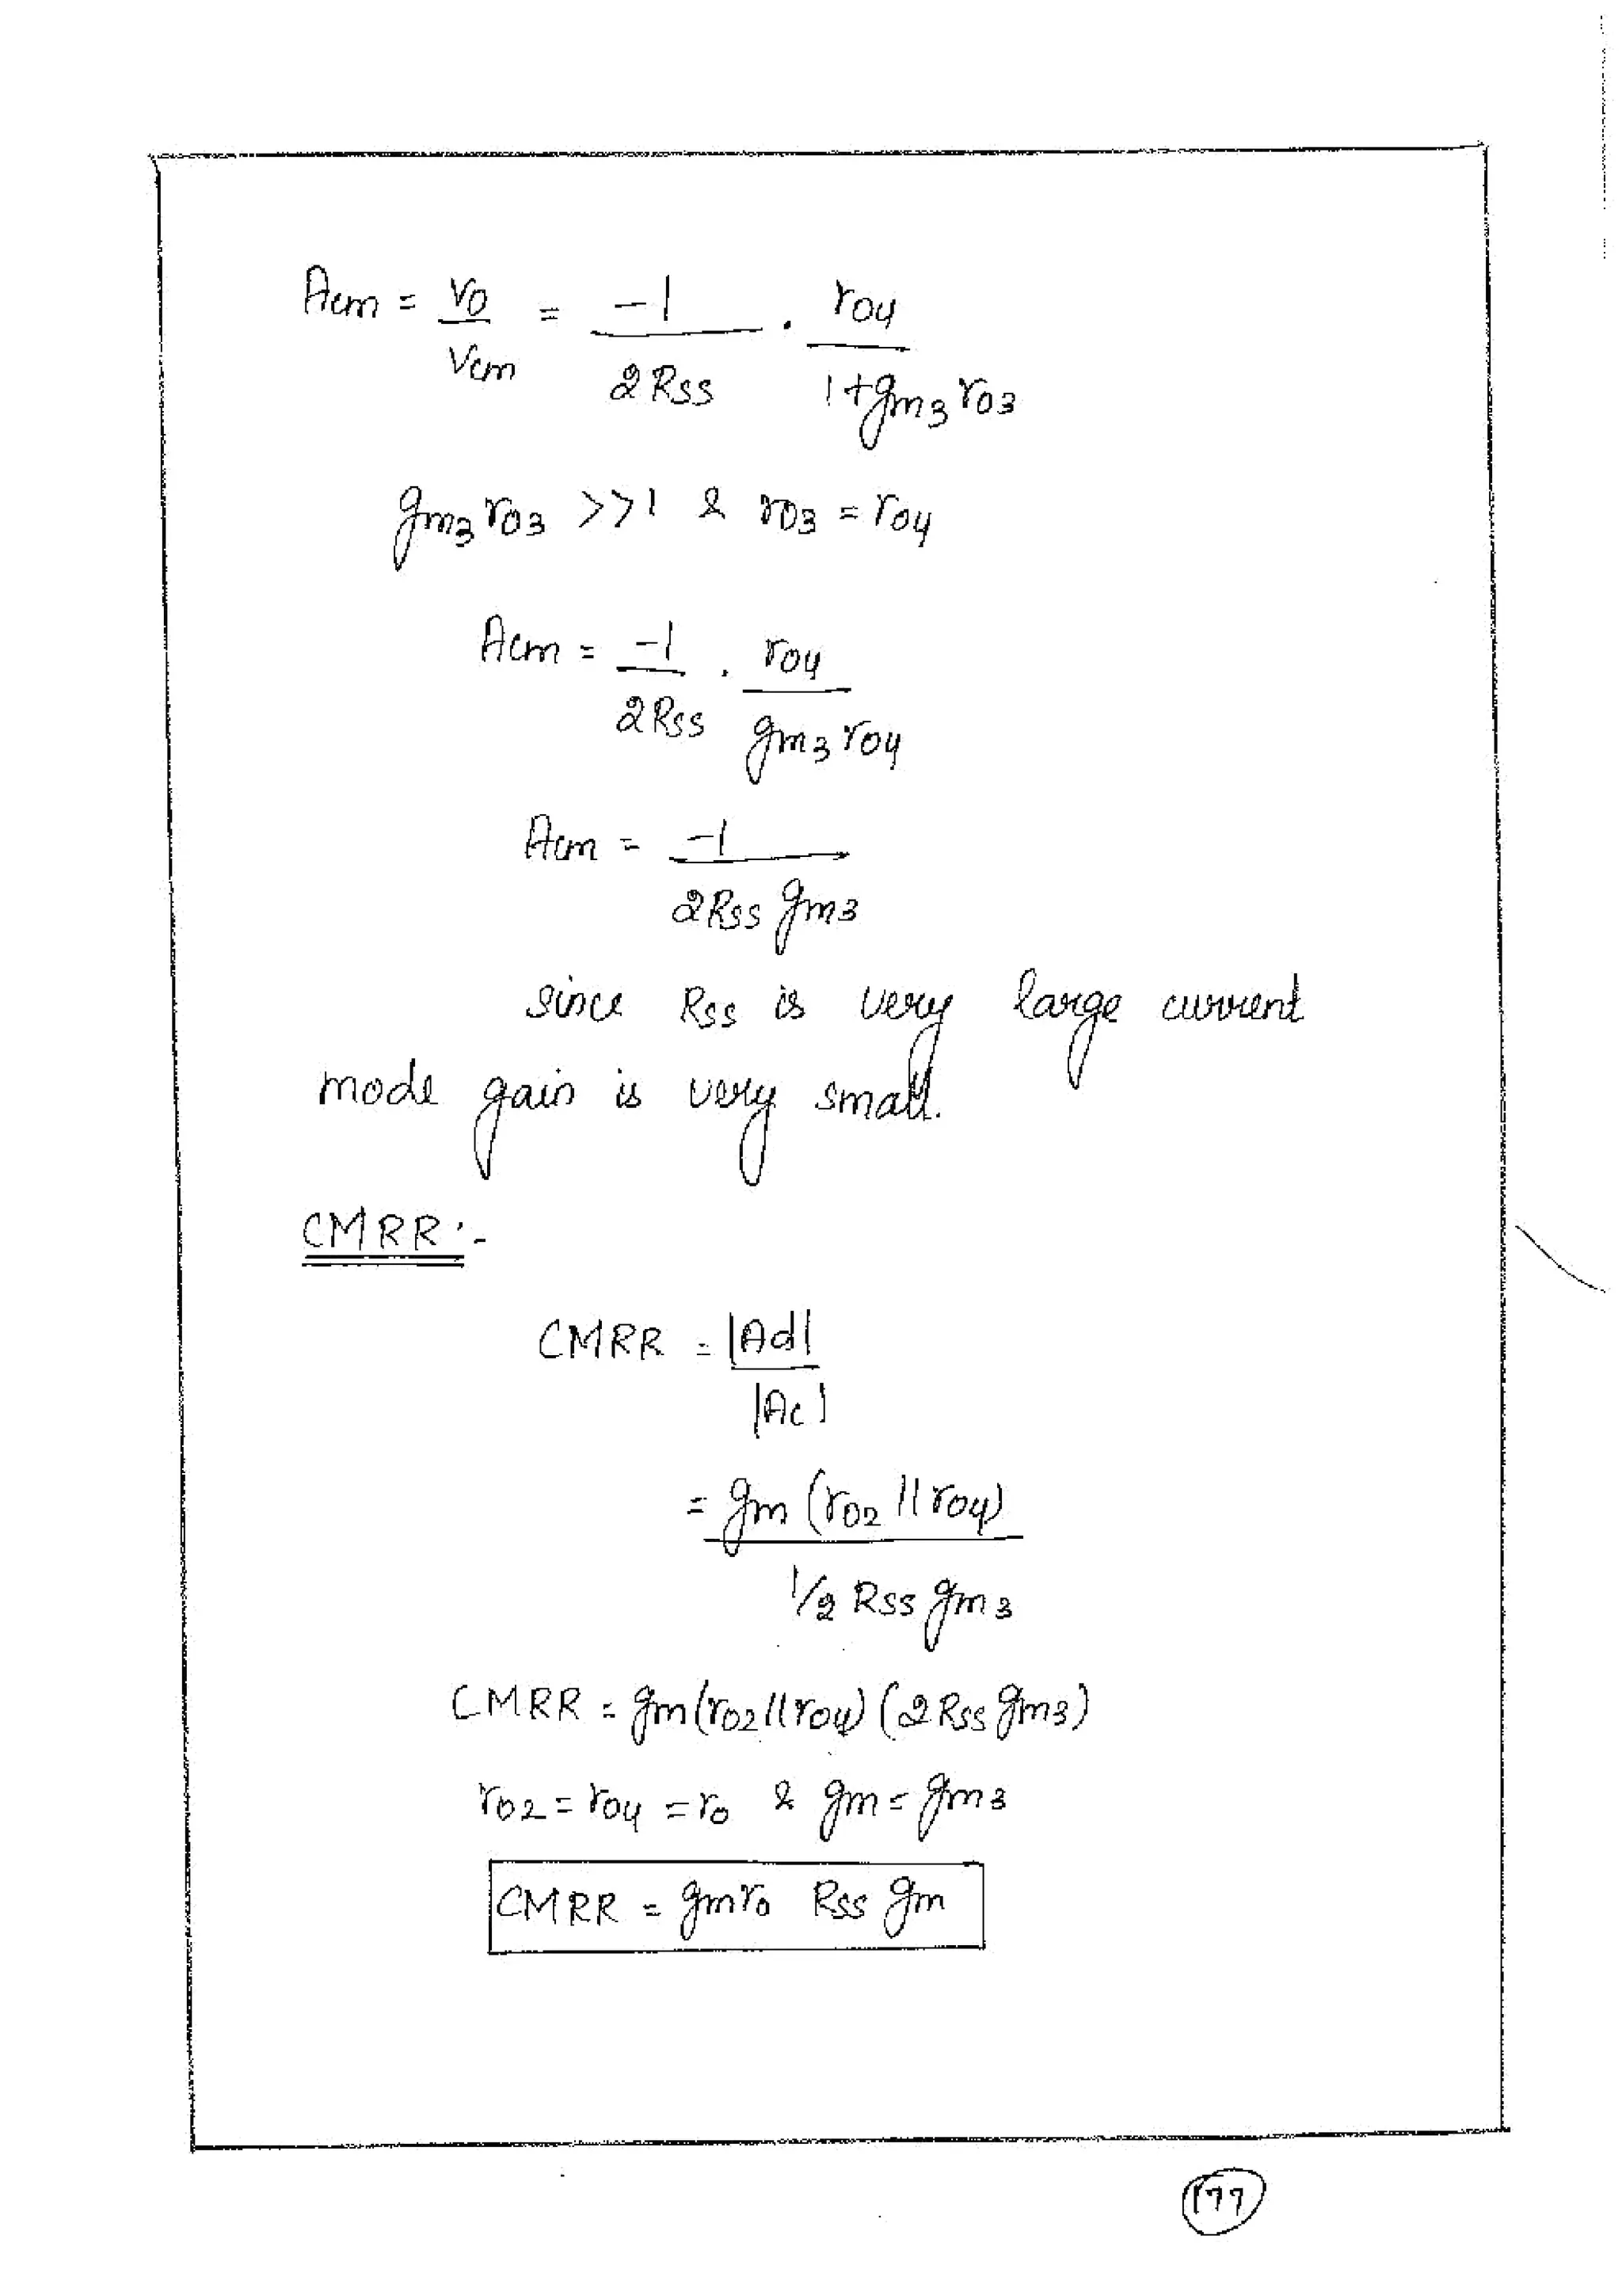 Acm = vo/vcm = -1/2Rss · ro4/1+gm3ro3
gm3ro3 >>1 & ro3 = ro4
Acm = -1/2Rss · ro4/gm3ro4
Acm = -1/2Rss gm3
since Rss is very large current
mode gain is very small.
CMRR :-
CMRR = |Ad|/|Ac|
= gm (ro2 || ro4)/1/2 Rss gm3
CMRR = gm(ro2||ro4) (2Rss gm3)
ro2 = ro4 = ro & gm = gm3
CMRR = gmro Rss gm
177